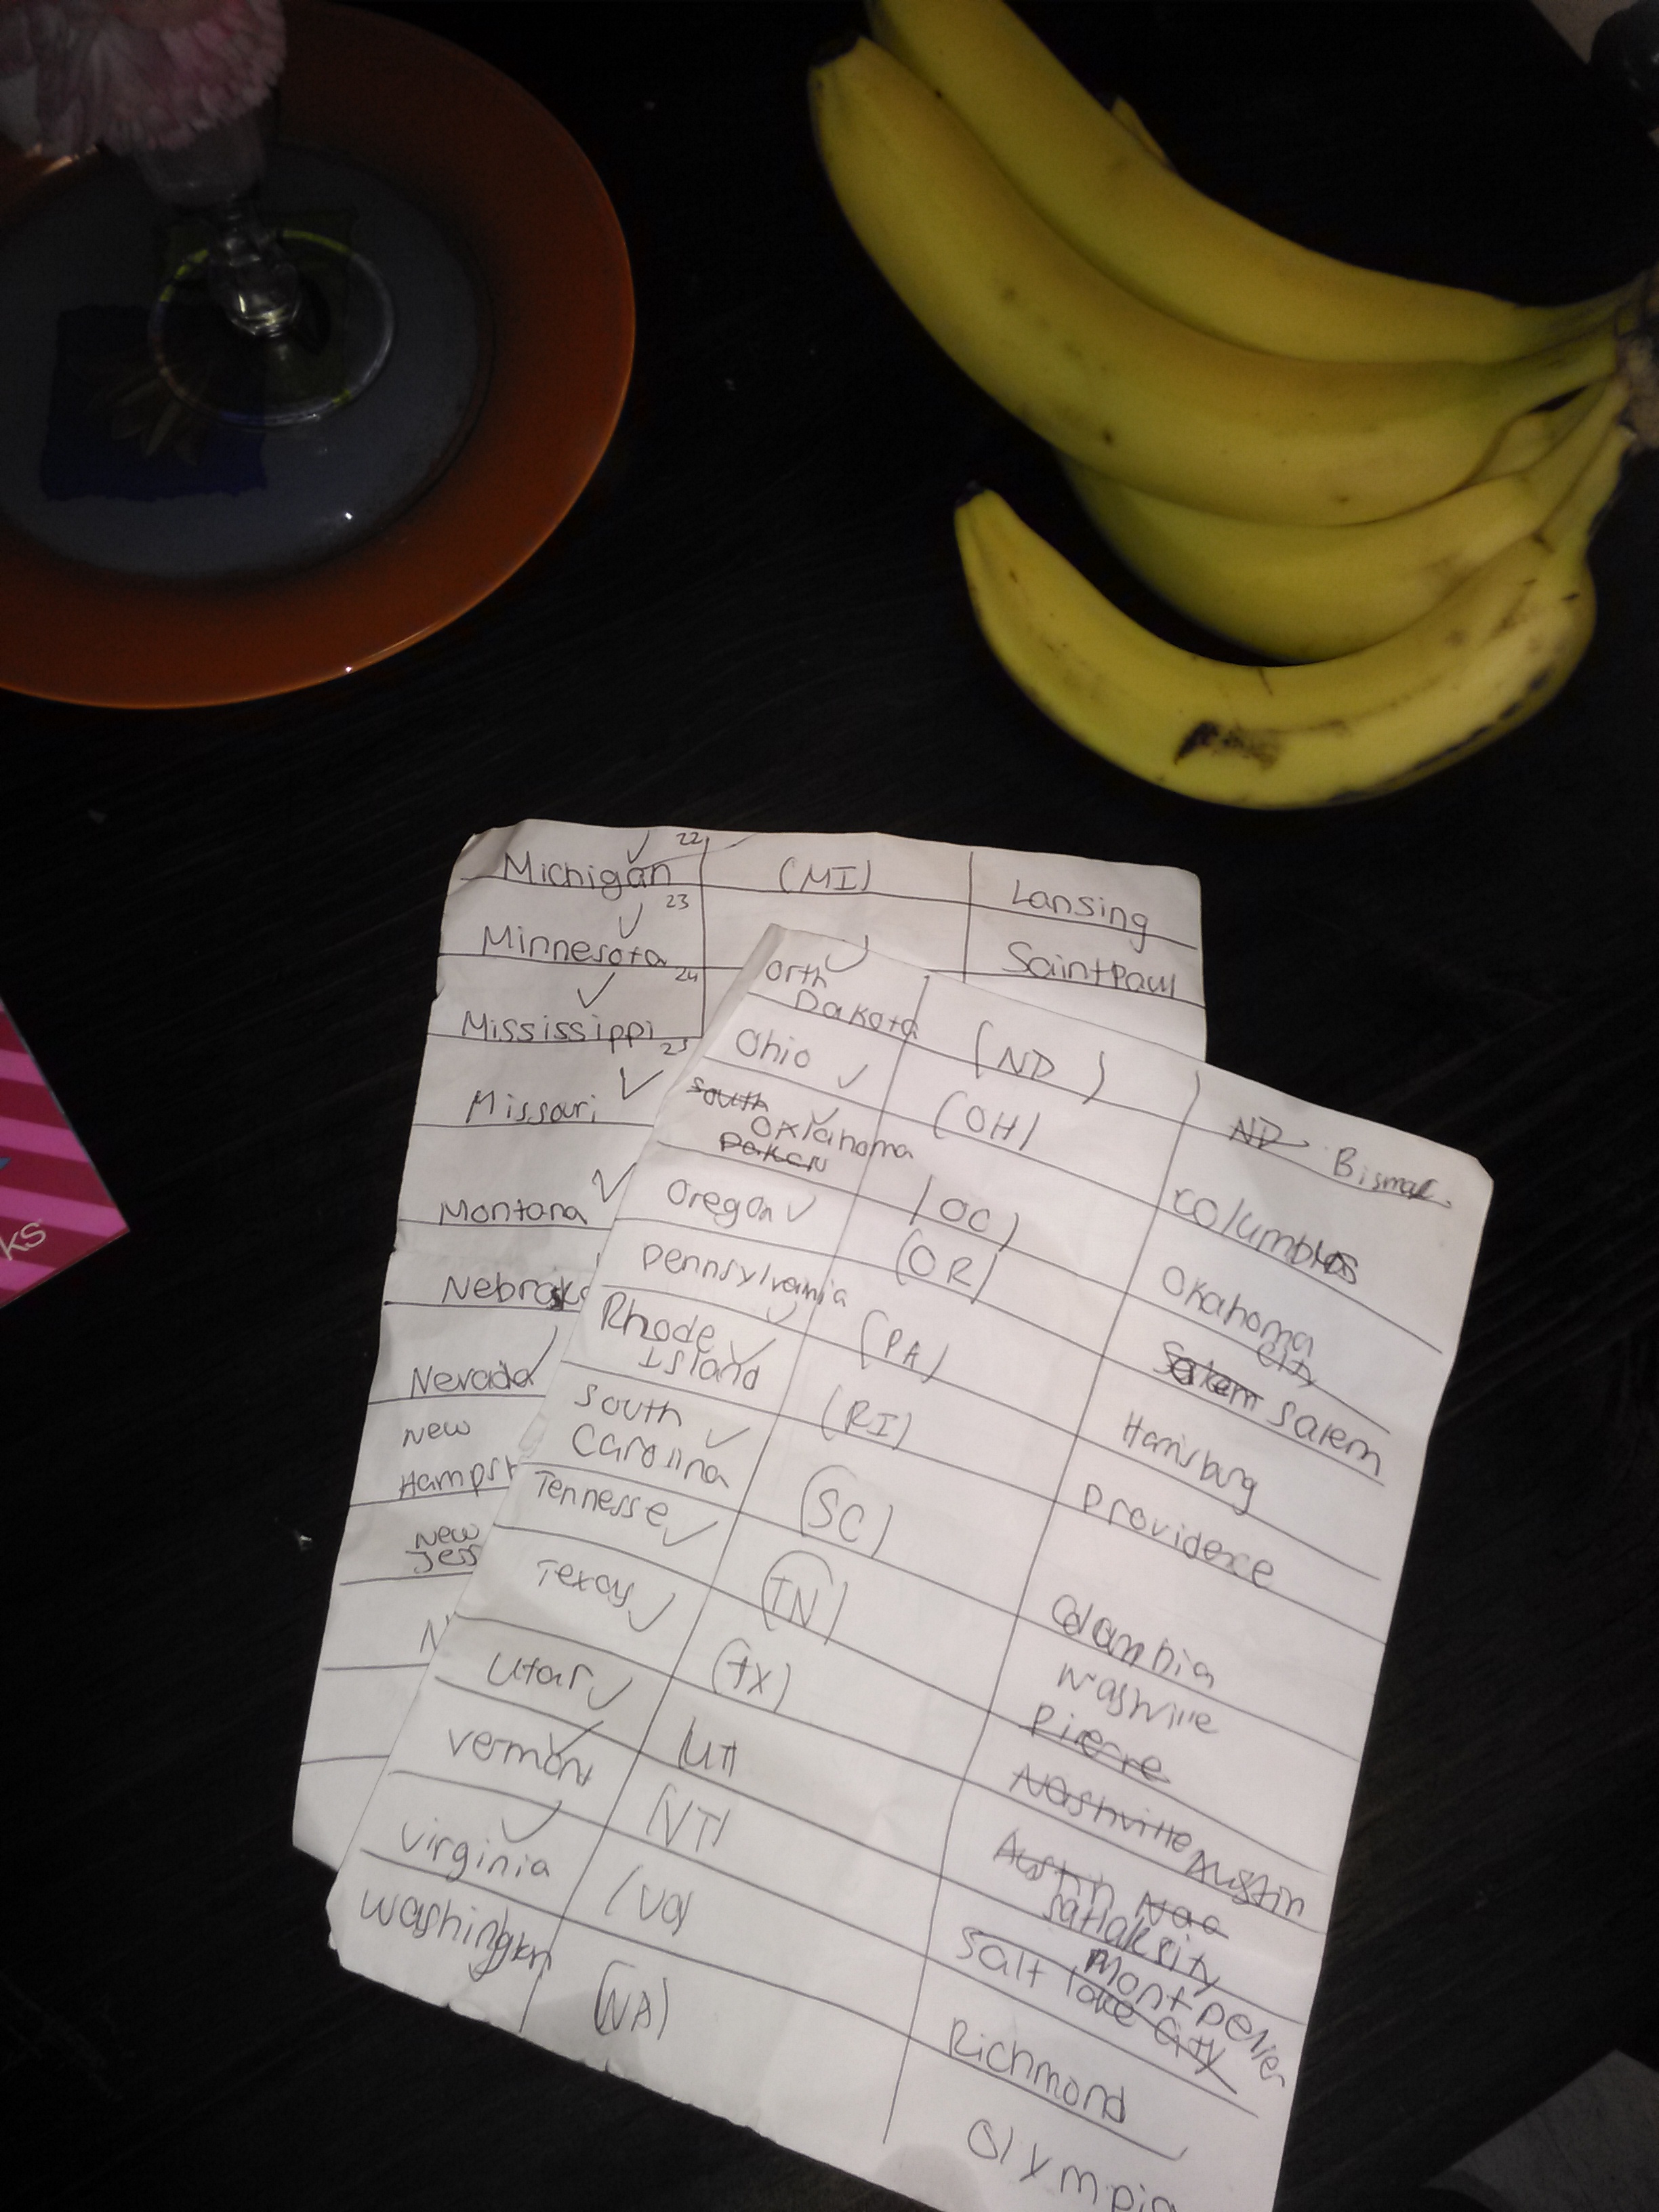 22
Michigan (MI) Lansing
23
Minnesota Saint Paul
24
Mississippi
25
Missouri
Montana
Nebrask
Nevada
New
Hampsh
New
Jess
N
orth
Dakota (ND) ND Bismar.
Ohio (OH) columbus
South
Oklahoma (OC) Okahoma
City
Dakota
Oregon (OR) Salem Salem
Pennsylvania (PA) Harrisburg
Rhode
Island (RI) Providence
South
Carolina (SC) Columbia
Tennesse (TN) Nashville
Pierre
Texas (TX) Nashville Austin
Austin Nac
Utar (UT) Salt lake City
vermont (VT) Montpelier
virginia (Va) Richmond
washington (WA) Olympia
ks